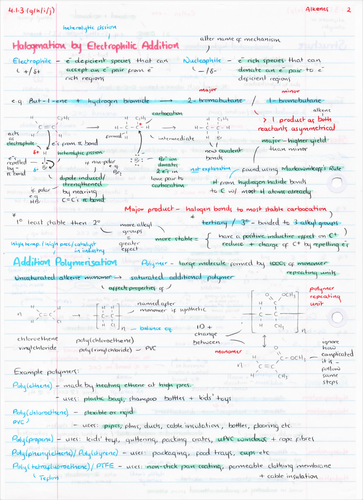 4.1.3 (g/h/i/j)
Alkenes 2
heterolytic fission
alter name of mechanism
Halogenation by Electrophilic Addition
Electrophile - e⁻ deficient species that can accept an e⁻ pair from e⁻ rich regions
+/δ+
Nucleophile - e⁻ rich species that can donate an e⁻ pair to e⁻ deficient regions
-/δ-
major minor
e.g. But-1-ene + hydrogen bromide → 2-bromobutane / 1-bromobutane
carbocation
> 1 product as both reactants asymmetrical
major - higher yield than minor
acts as electrophile
e⁻ from π bond
heterolytic fission
intermediate
new covalent bonds
e⁻ repelled by e⁻ in π bond
if non-polar e.g. Br-Br
dipole induced/strengthened by nearing C=C's π bond
is polar e.g. HBr
not explanation
found using Markownikoff's Rule
+ from hydrogen halide bonds to C w/ most H atoms already
Major product - halogen bonds to most stable carbocation
1° least stable then 2°
more alkyl groups
greater effect
more stable
tertiary/3° - bonded to 3 alkyl groups
have a positive inductive effect on C⁺
reduce + charge of C⁺ by repelling e⁻s
high temp./high pres./catalyst in industry
Addition Polymerisation
Polymer - large molecule formed by 1000s of monomer repeating units
Unsaturated alkene monomer → saturated additional polymer
affects properties of
named after monomer if synthetic
balance eq.
chloroethene
vinylchloride
poly(chloroethene)
poly(vinylchloride) - PVC
10 + change between
monomer
polymer repeating unit
ignore how complicated it is - follow same steps
Example polymers:
Poly(ethene) - made by heating ethene at high pres.
- uses: plastic bags, shampoo bottles + kids' toys
Poly(chloroethene) - flexible or rigid
PVC
- uses: pipes, films, ducts, cable insulations, bottles, flooring etc
Poly(propene) - uses: kids' toys, guttering, packing crates, uPVC windows + rope fibres
Poly(phenylethene)/Poly(styrene) - uses: packaging, food trays, cups etc
Poly(tetrafluoroethene)/PTFE - uses: non-stick pan coating, permeable clothing membrane + cable insulation
Teflon